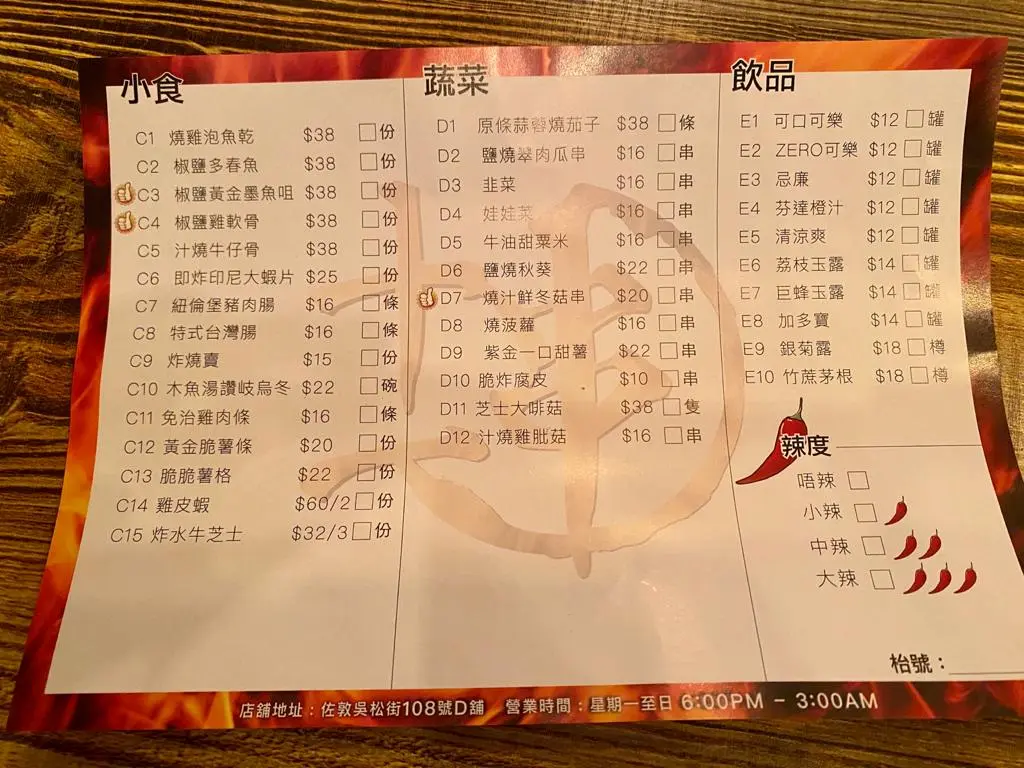 小食
C1 燒雞泡魚乾 $38 份
C2 椒鹽多春魚 $38 份
C3 椒鹽黃金墨魚咀 $38 份
C4 椒鹽雞軟骨 $38 份
C5 汁燒牛仔骨 $38 份
C6 即炸印尼大蝦片 $25 份
C7 紐倫堡豬肉腸 $16 條
C8 特式台灣腸 $16 條
C9 炸燒賣 $15 份
C10 木魚湯讚岐烏冬 $22 碗
C11 免治雞肉條 $16 條
C12 黃金脆薯條 $20 份
C13 脆脆薯格 $22 份
C14 雞皮蝦 $60/2 份
C15 炸水牛芝士 $32/3 份
蔬菜
D1 原條蒜蓉燒茄子 $38 條
D2 鹽燒翠肉瓜串 $16 串
D3 韭菜 $16 串
D4 娃娃菜 $16 串
D5 牛油甜粟米 $16 串
D6 鹽燒秋葵 $22 串
D7 燒汁鮮冬菇串 $20 串
D8 燒菠蘿 $16 串
D9 紫金一口甜薯 $22 串
D10 脆炸腐皮 $10 串
D11 芝士大啡菇 $38 隻
D12 汁燒雞肶菇 $16 串
飲品
E1 可口可樂 $12 罐
E2 ZERO可樂 $12 罐
E3 忌廉 $12 罐
E4 芬達橙汁 $12 罐
E5 清涼爽 $12 罐
E6 荔枝玉露 $14 罐
E7 巨蜂玉露 $14 罐
E8 加多寶 $14 罐
E9 銀菊露 $18 樽
E10 竹蔗茅根 $18 樽
辣度
唔辣
小辣
中辣
大辣
枱號：
店舖地址：佐敦吳松街108號D舖 營業時間：星期一至日 6:00PM - 3:00AM